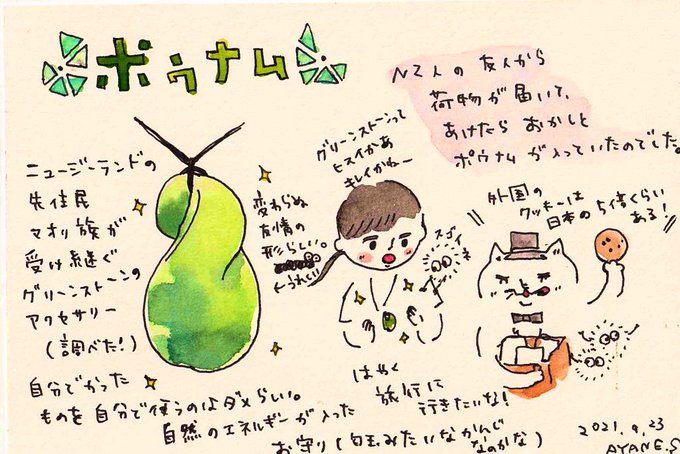 ポゥナム
NZ人の友人から
荷物が届いて、
あけたらおかしと
ポウナムが入っていたのでした。
ニュージーランドの
先住民
マオリ族が
受け継ぐ
グリーンストーンの
アクセサリー
(調べた!)
変わらぬ
友情の
形らしい。
←うれしい
グリーンストーンって
ヒスイかあ
キレイかねー
スゴイ
ネ
外国の
クッキーは
日本の5倍くらい
ある!
自分でかった
ものを自分で使うのはダメらしい。
自然のエネルギーが入った
お守り(勾玉みたいなかんじ
なのかな)
はやく
旅行に
行きたいな!
2021.9.23
AYANE.S